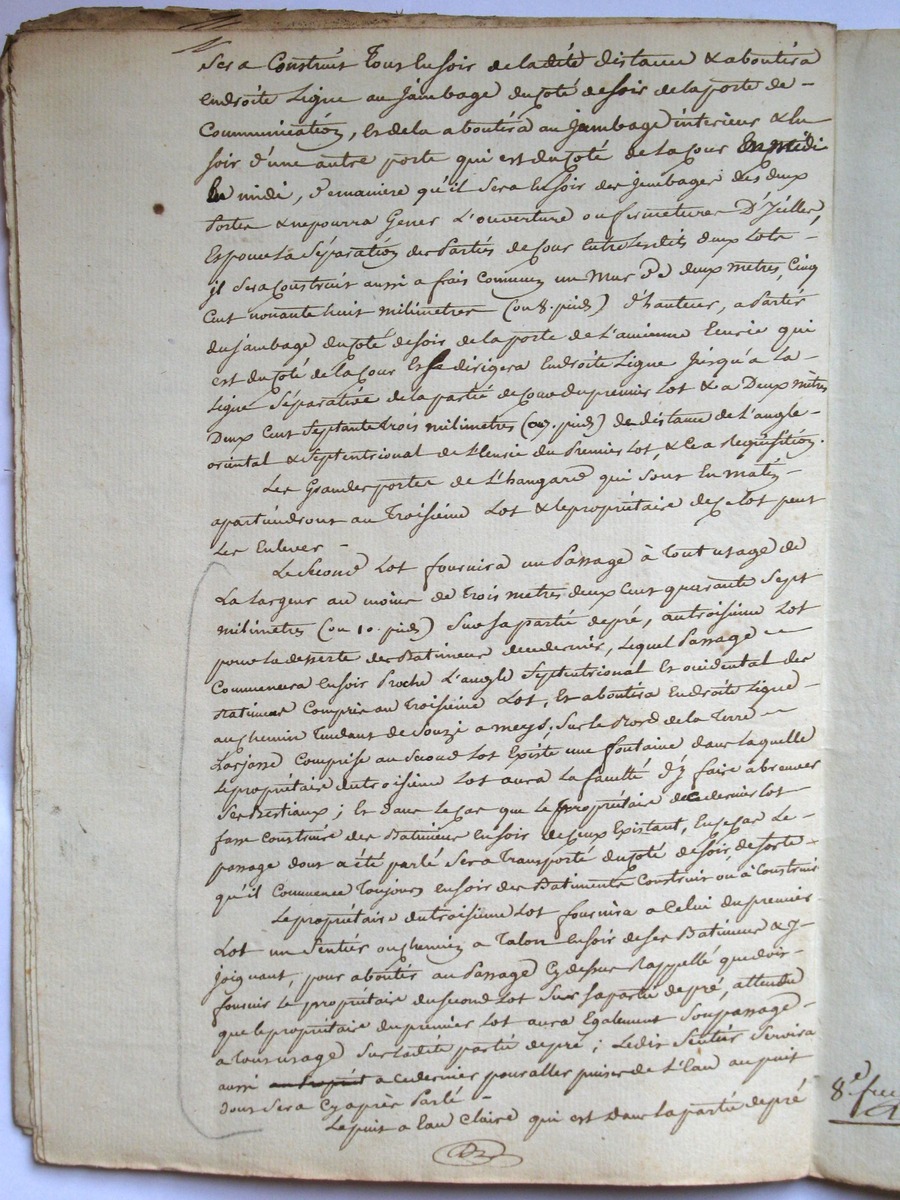 Sera Construit Tout en soir de la dite distance & aboutira
en droite Ligne au Jambage du Coté de soir de la porte de
Communication, Et de la aboutira au Jambage interieur & En
soir d'une autre porte qui est du Coté de la Cour
En midi, de maniere qu'il sera En soir des Jambages des deux
Portes & ne pourra Gener L'ouverture ou fermetures D'Icelles,
Et pour La Séparation des Parties de Cour Entre Lesdits deux Lots
il sera Construit aussi a frais Communs un Mur de deux metres, Cinq
Cent nonante huit milimetres (ou 8. pieds) d'hauteur, a Partir
du Jambage du Coté de soir de la porte de L'ancienne Ecurie qui
est du Coté de la Cour Et se dirigera En droite Ligne Jusqu'a La
Ligne Séparative de la partie de Cour du premier Lot & a Deux mètres
Deux Cent Septante trois milimetres (ou 7. pieds) de distance de L'angle
oriental & Septentrional de L'Ecurie du Premier Lot, & Ce a Requisition.
Les Grandes portes de L'hangard qui sont En matin
apartiendront au Troisieme Lot & le propriétaire de Ce Lot peut
Les Enlever
Le Second Lot fournira un Passage à Tout usage de
La Largeur au moins de Trois metres deux Cent quarante Sept
milimetres (ou 10. pieds) Sur sa partie de pré, au troisieme Lot
pour la desserte des Batimens de ce dernier, Lequel Passage
Commencera En soir Proche L'angle Septentrional Et occidental des
Batimens Compris au Troisieme Lot, Et aboutira En droite Ligne
au Chemin Tendant de Souzi a meys. Sur Le Bord de la Terre
Larjasse Comprise au Second Lot Existe une fontaine dans Laquelle
Le propriétaire du troisieme Lot aura La faculté d'y faire abreuver
Ses Bestiaux ; Et dans Le Cas que Le propriétaire de ce dernier Lot
fasse Construire des Batimens En soir de Ceux Existant, En ce Cas Le
passage dont a été parlé Sera Transporté du Coté de soir de sorte
qu'il Commence Toujours En soir des Batiments Construit ou à Construire
Le propriétaire du troisieme Lot fournira a Celui du premier
Lot un Sentier ou Chemin a Talon En soir de ses Batimens & Y
Joignant, pour aboutir au Passage Cy dessus Rappellé que doit
fournir Le propriétaire du second Lot Sur sa partie de pré, attendu
que le propriétaire du premier Lot aura Egalement Son passage
a Tout usage Sur Ladite partie de pré ; Ledit Sentier Servira
aussi a ce dernier pour aller puiser de L'Eau au puit
dont Sera Cy après Parlé
Le puit a Eau Claire qui est Dans la partie de pré
8.e